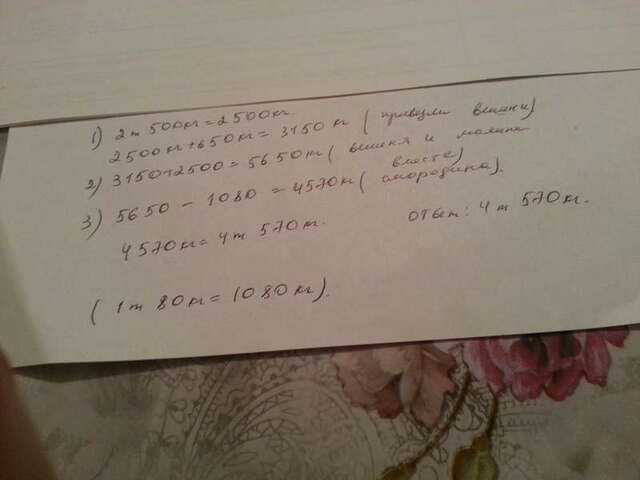 1) 2т 500кг=2500кг.
2500кг+650кг=3150кг (привезли вишни)
2) 3150+2500=5650т (вишня и малина
вместе)
3) 5650-1080=4570кг (смородина).
4570кг=4т 570кг.
Ответ: 4т 570кг.
(1т 80кг=1080кг).